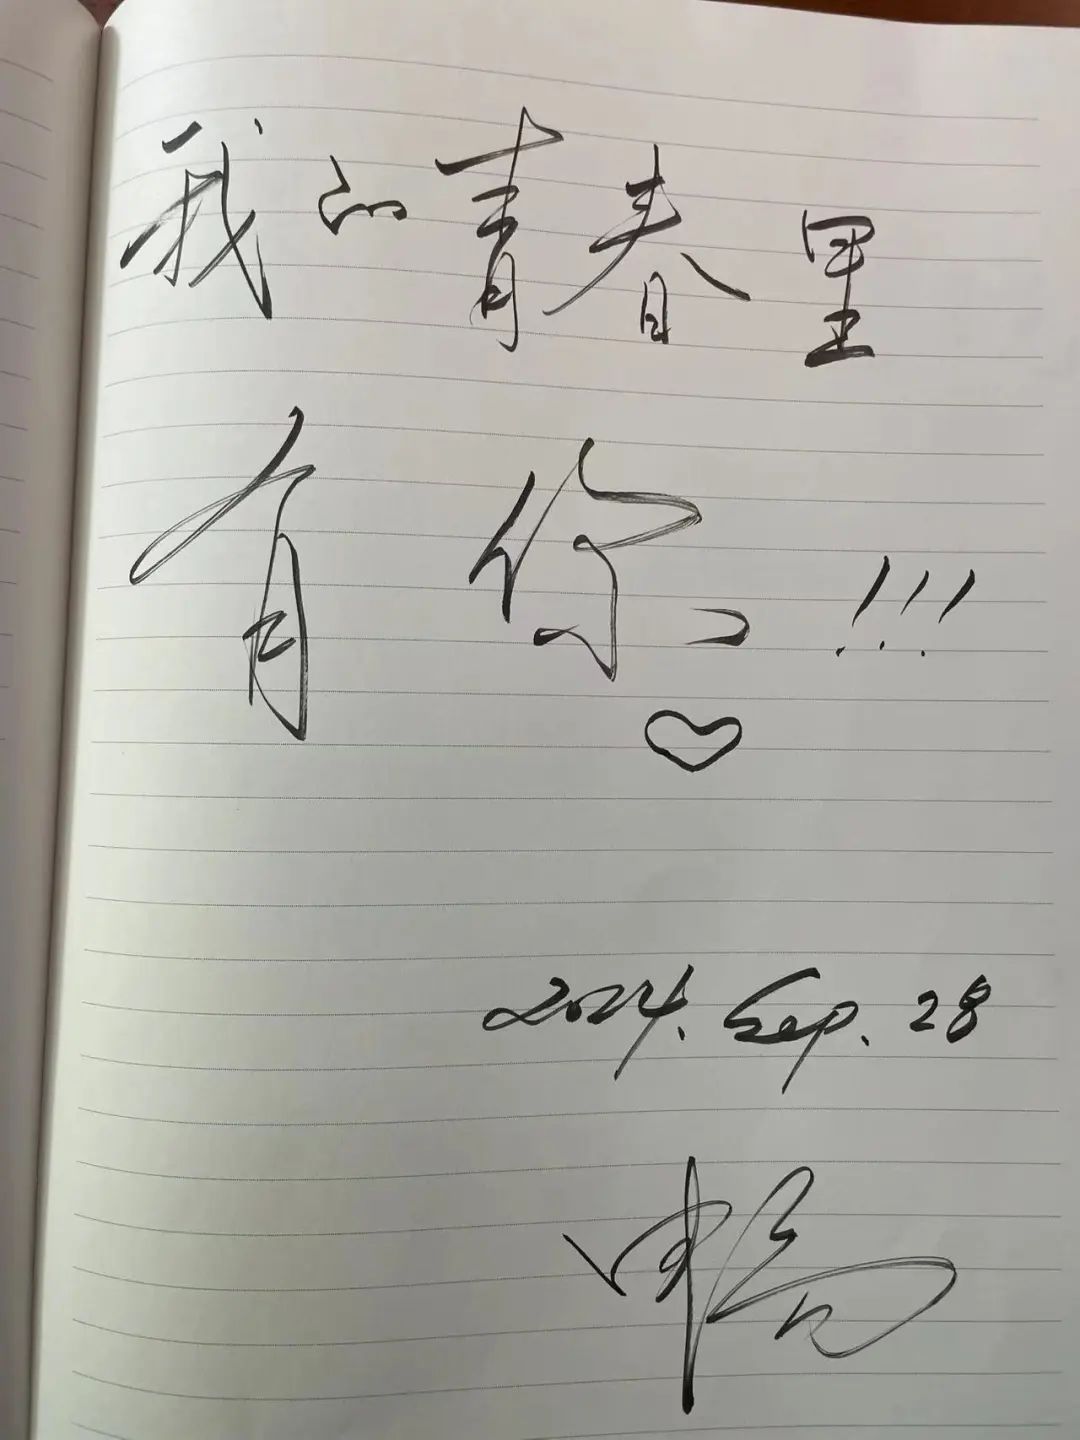 我的青春里
有你!!!
2024. Sep. 28